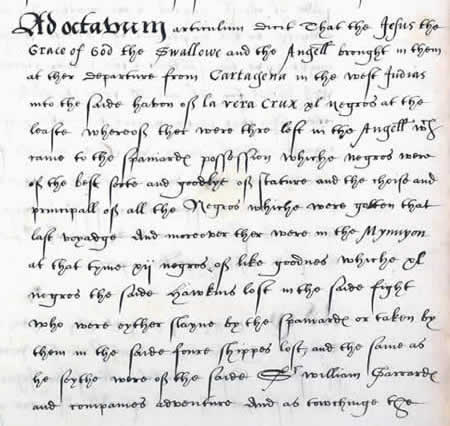 Ad octavum articulum dicit That the Jesus the
Grace of God the Swallowe and the Angell brought in them
at ther departure from Cartagena in the west Indias
into the saide haven of la vera Crux xl negros at the
leaste whereof ther were thre lost in the Angell wch
came to the spaniardes possession whiche negros were
of the best sorte and goodlye of stature and the choise and
principall of all the Negros whiche were gotten that
last voyadge And moreover ther were in the Mynnyon
at that tyme xii negros of like goodnes whiche xl
negros the saide Hawkins lost in the saide fight
who were eyther slayne by the spaniardes or taken by
them in the saide foure shippes lost, and the same as
he seythe were of the saide Sr William Garrardes
and companies adventure And as towchinge the